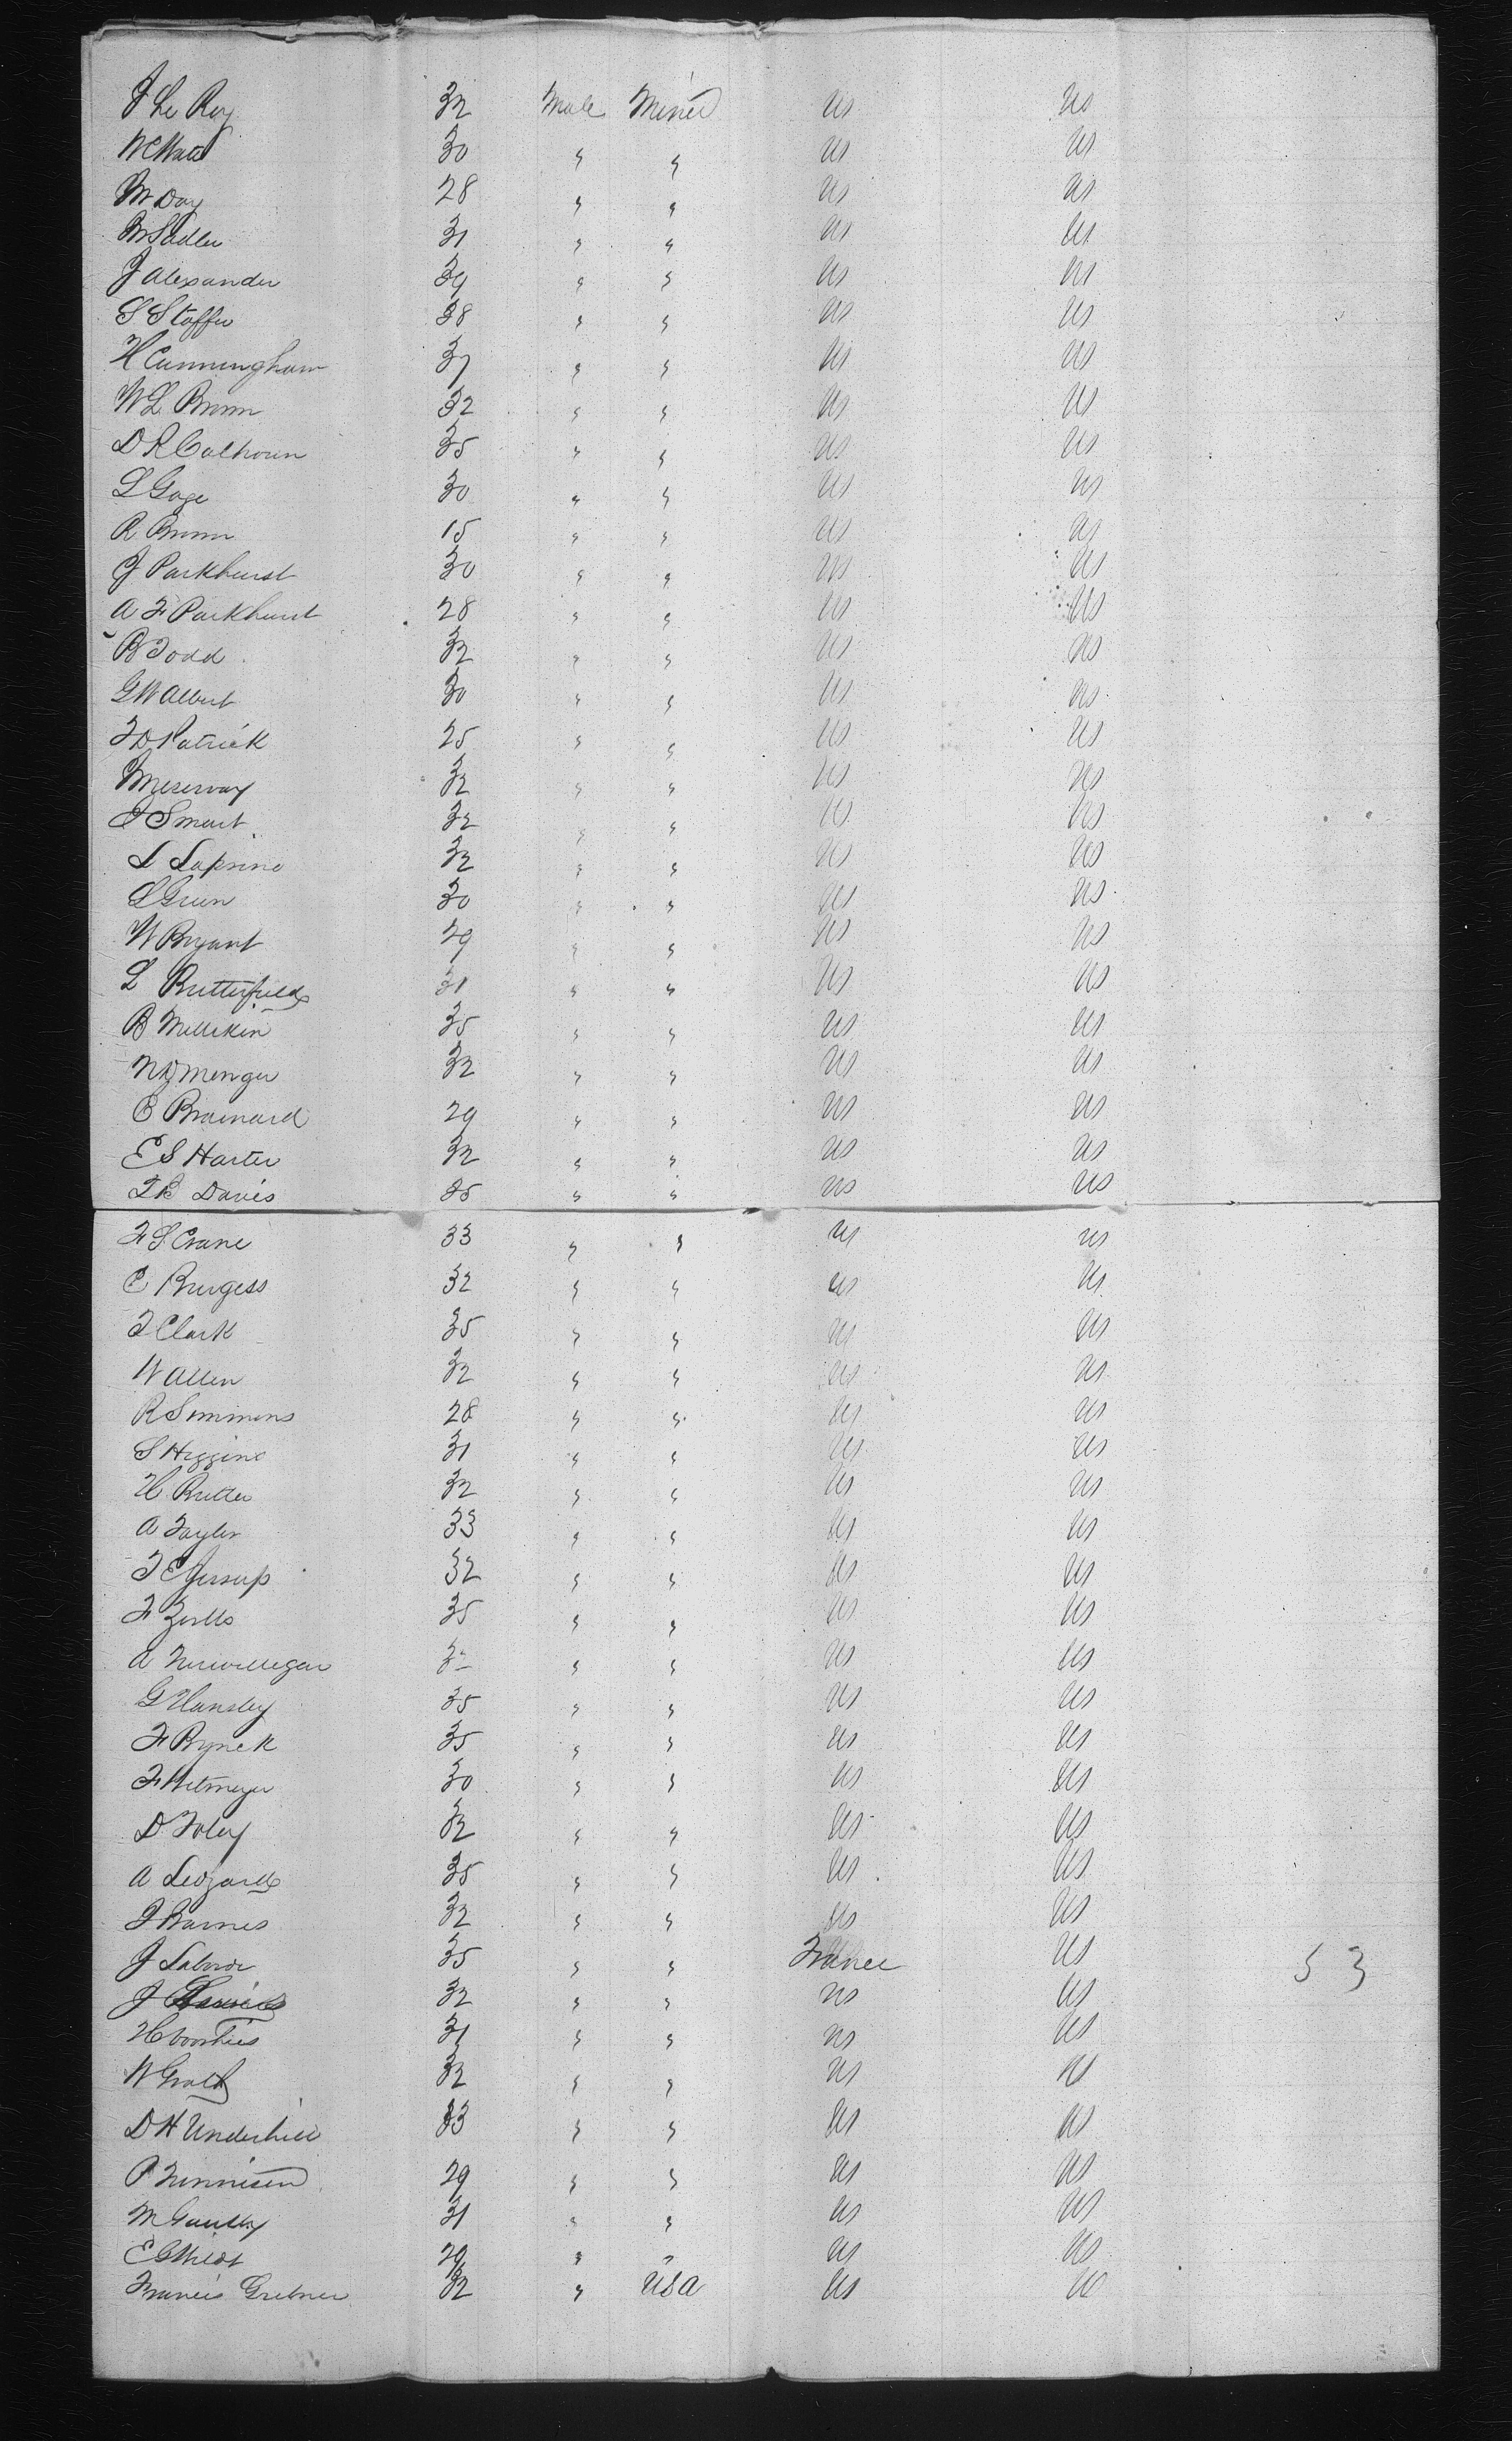 J Le Roy 32 Male Miner US US
W C Watt 30 " " US US
M Day 28 " " US US
M Sadler 31 " " US US
J Alexander 39 " " US US
S Stoffer 38 " " US US
H Cunningham 37 " " US US
W L Brown 32 " " US US
D R Calhoun 35 " " US US
L Gage 30 " " US US
R Brown 15 " " US US
J Parkhurst 30 " " US US
A F Parkhurst 28 " " US US
B Todd 32 " " US US
G W Albert 30 " " US US
T D Patrick 25 " " US US
Meservay 32 " " US US
J Smart 32 " " US US
L 32 " " US US
L Green 30 " " US US
W Bryant 29 " " US US
L Butterfield 31 " " US US
B Milliken 35 " " US US
Menger 32 " " US US
C Brainard 29 " " US US
E S Harter 32 " " US US
T B Davis 35 " " US US
F S Crane 33 " " US US
C Burgess 32 " " US US
T Clark 35 " " US US
W Allen 32 " " US US
R Simmons 28 " " US US
S Higgins 31 " " US US
H Butter 32 " " US US
A Taylor 33 " " US US
T E Jessup 32 " " US US
F 35 " " US US
A Terwilleger " " US US
G Hansley 35 " " US US
F Rynck 35 " " US US
F 30 " " US US
D Foley 32 " " US US
A 35 " " US US
J Barnes 32 " " US US
J Labour 35 " " France US 53
J 32 " " US US
H Voorhies 31 " " US US
W 32 " " US US
D H Underhill 33 " " US US
P Tennisen 29 " " US US
M 31 " " US US
E 29 " " US US
Francis Grebner 32 " USA US US